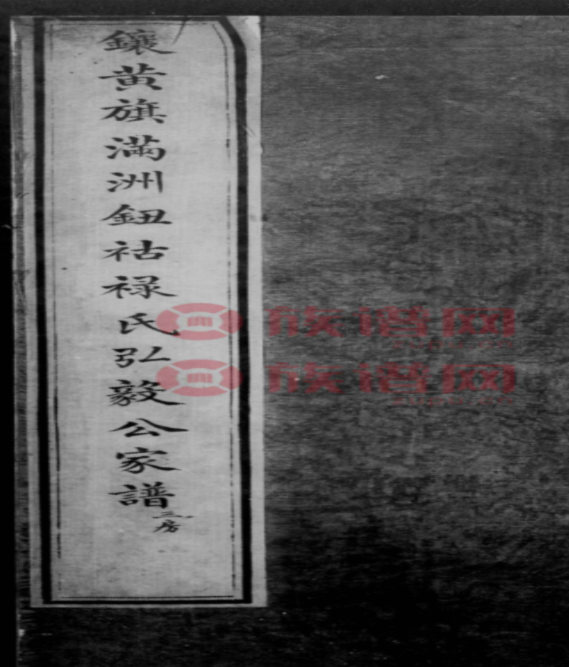 鑲黄旗滿洲鈕祜禄氏弘毅公家譜
三房
族谱网
族谱网